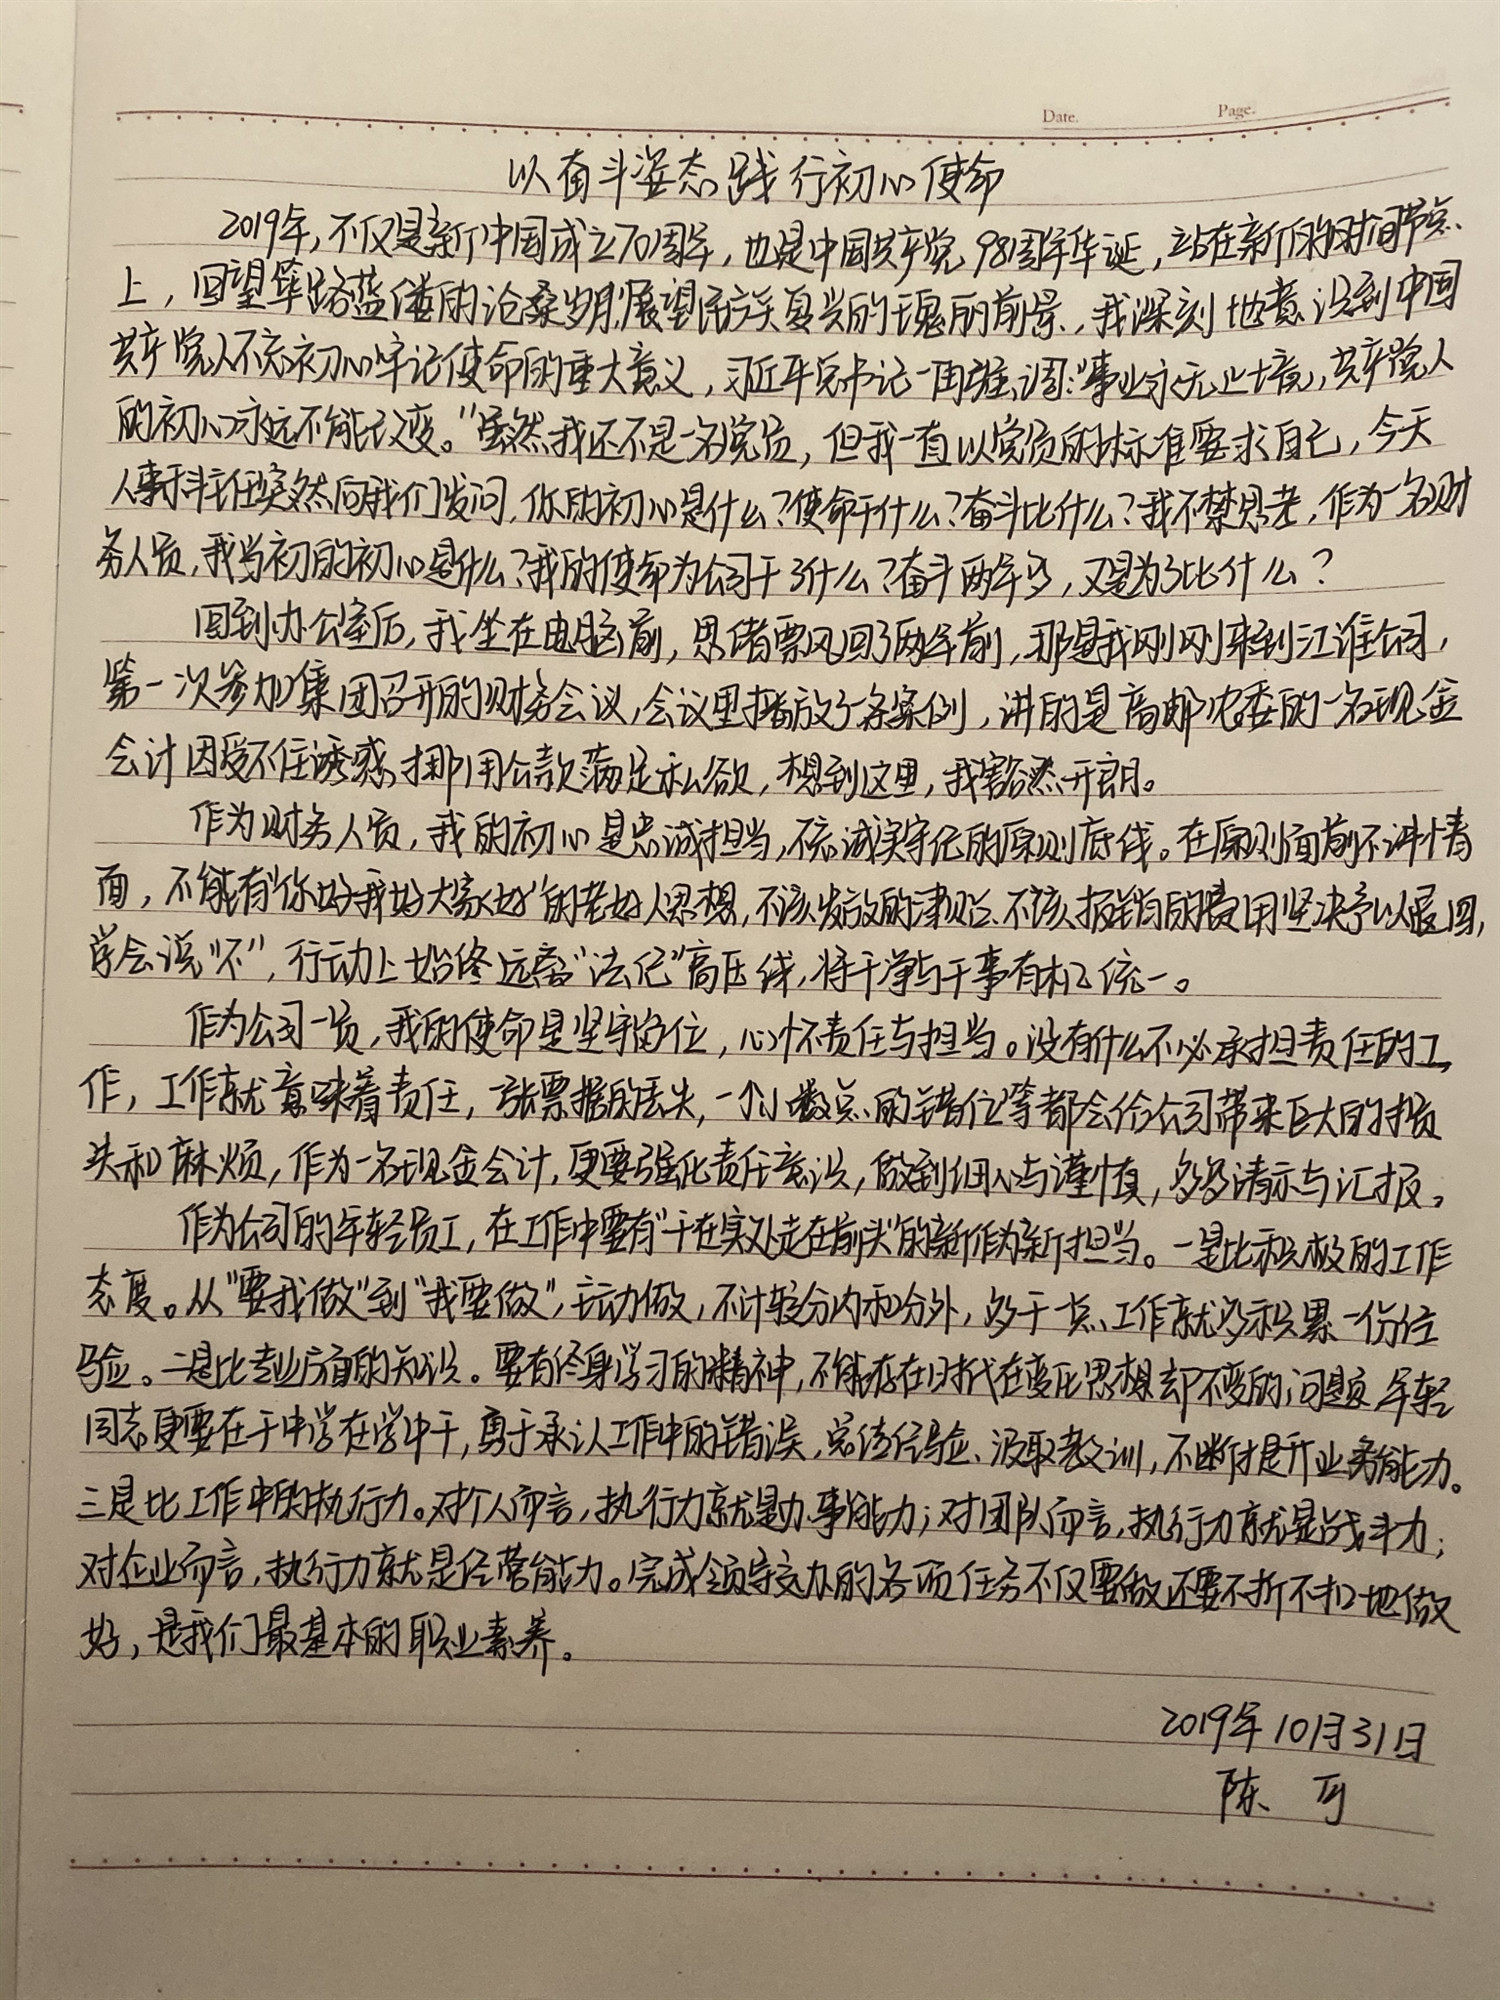 Date.
Page.
以奋斗姿态践行初心使命
2019年，不仅是新中国成立70周年，也是中国共产党98周年华诞，站在新的时间节点
上，回望筚路蓝缕的沧桑岁月，展望民族复兴的瑰丽前景，我深刻地意识到中国
共产党人不忘初心牢记使命的重大意义，习近平总书记一再强调："事业永无止境，共产党人
的初心永远不能改变。"虽然我还不是一名党员，但我一直以党员的标准要求自己，今天
人事科主任突然向我们发问，你的初心是什么？使命干什么？奋斗比什么？我不禁思考，作为一名财
务人员，我当初的初心是什么？我的使命为公司干了什么？奋斗两年多，又是为了比什么？
回到办公室后，我坐在电脑前，思绪飘回了两年前，那是我刚刚来到江淮公司，
第一次参加集团召开的财务会议，会议里播放了一条案例，讲的是高邮农委的一名现金
会计因受不住诱惑，挪用公款满足私欲，想到这里，我豁然开朗。
作为财务人员，我的初心是忠诚担当，不忘诚实守纪的原则底线。在原则面前不讲情
面，不能有"你好我好大家好"的老好人思想，不该发放的津贴、不该报销的费用坚决予以退回，
学会说"不"，行动上始终远离"法纪"高压线，将干净与干事有机统一。
作为公司一员，我的使命是坚守岗位，心怀责任与担当。没有什么不必承担责任的工
作，工作就意味着责任，一张票据的丢失，一个小数点的错位等都会给公司带来巨大的损
失和麻烦，作为一名现金会计，更要强化责任意识，做到细心与谨慎，多多请示与汇报。
作为公司的年轻员工，在工作中要有"干在实处走在前头"的新作为新担当。一是比积极的工作
态度。从"要我做"到"我要做"，主动做，不计较分内和分外，多干一点工作就多积累一份经
验。二是比专业方面的知识。要有终身学习的精神，不能存在时代在变化思想却不变的问题，年轻
同志更要在干中学在学中干，勇于承认工作中的错误，总结经验、汲取教训，不断提升业务能力。
三是比工作中的执行力。对个人而言，执行力就是办事能力；对团队而言，执行力就是战斗力；
对企业而言，执行力就是经营能力。完成领导交办的各项任务不仅要做还要不折不扣地做
好，是我们最基本的职业素养。
2019年10月31日
陈